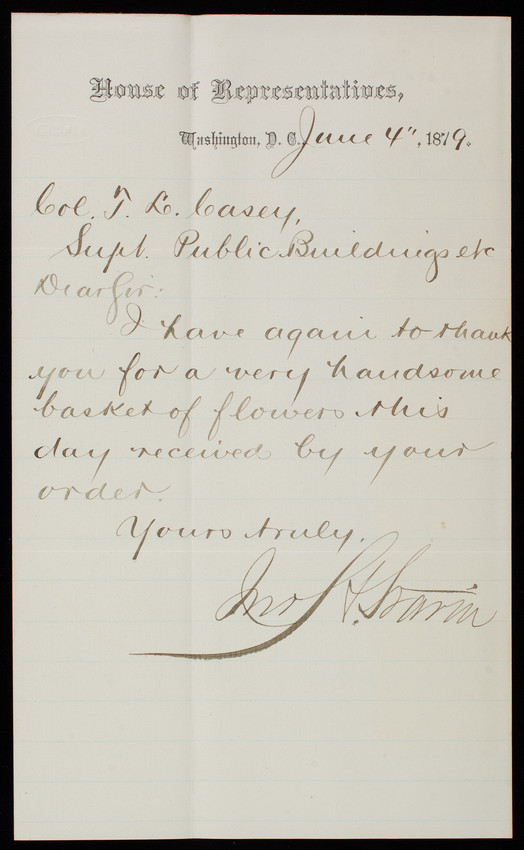 House of Representatives,
Washington, D. C., June 4", 1879.
Col. T. L. Casey,
Supt. Public Buildings etc
Dear Sir:
I have again to thank
you for a very handsome
basket of flowers this
day received by your
order.
Yours truly,
Jno H. Starin